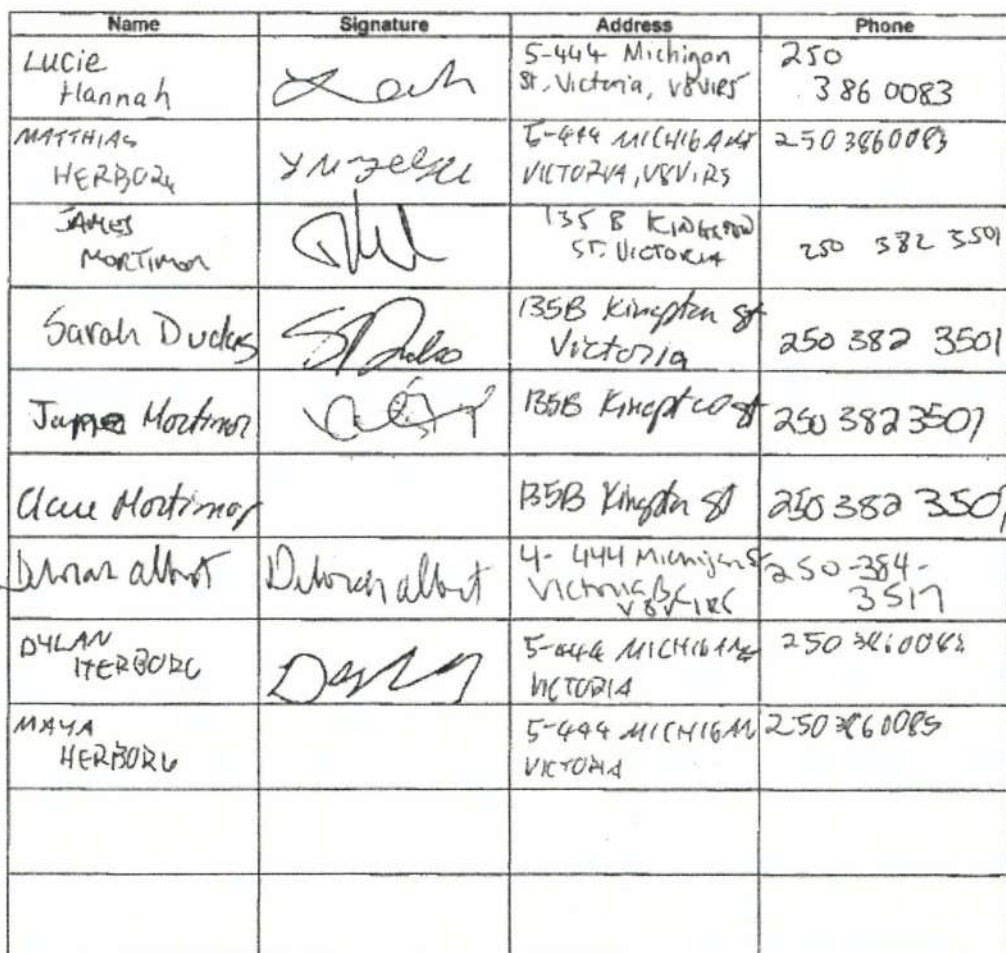 Name Signature Address Phone
Lucie
Hannah
5-444 Michigan
St, Victoria, V8V1R5
250
386 0083
MATTHIAS
HERBORG
5-444 MICHIGAN ST
VICTORIA, V8V1R5
250 3860083
JAMES
MORTIMOR
135 B KINGSTON
ST. VICTORIA
250 382 3501
Sarah Duckes
135B Kingston St
Victoria
250 382 3501
Mortimor
135B Kingston St
250 382 3501
Mortimor
135B Kingston St
250 382 3501
Deborah albert
Deborah albert
4- 444 Michigan St
Victoria BC
V8V 1R5
250-384-
3517
DYLAN
HERBORG
5-444 MICHIGAN
VICTORIA
250 3860083
MAYA
HERBORG
5-444 MICHIGAN
VICTORIA
250 3860083